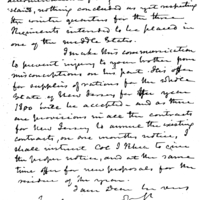 stand, nothing concluded as yet respecting
the winter quarters for the three
Regiments intended to be placed in
one of the middle States.
I make this communication
to prevent injury to your brother from
misconceptions on his part. His offer
for supplies of rations for the
State of New Jersey for the year
1800 will be accepted - and as there
are provisions in all the contracts
for New Jersey to annul the existing
contracts, on one months notice, I
shall instruct Col. to give
the proper notice, and at the same
time offer for new proposals for the
residue of the year.
I am Dear Sir very